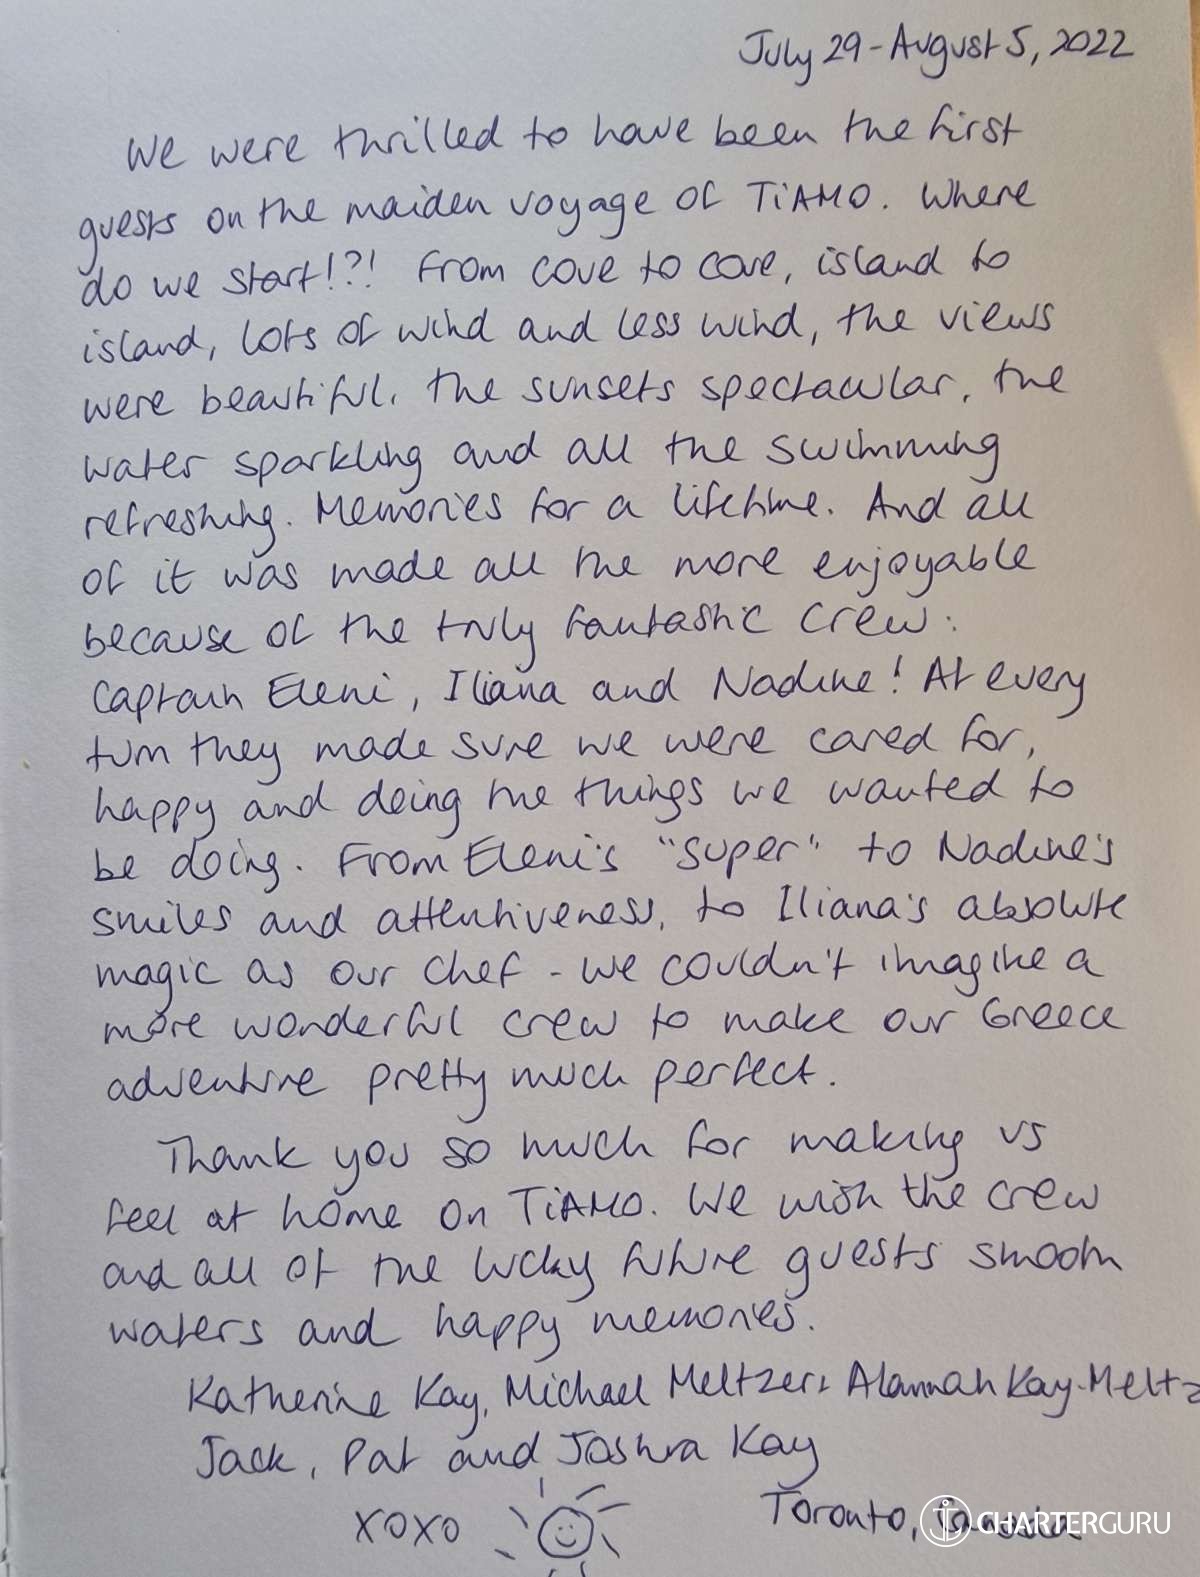 July 29 - August 5, 2022
We were thrilled to have been the first
guests on the maiden voyage of TiAMO. Where
do we start!?! From cove to cove, island to
island, lots of wind and less wind, the views
were beautiful. The sunsets spectacular, the
water sparkling and all the swimming
refreshing. Memories for a lifetime. And all
of it was made all the more enjoyable
because of the truly fantastic crew:
Captain Eleni, Iliana and Nadine! At every
turn they made sure we were cared for,
happy and doing the things we wanted to
be doing. From Eleni's "super" to Nadine's
smiles and attentiveness, to Iliana's absolute
magic as our chef - we couldn't imagine a
more wonderful crew to make our Greece
adventure pretty much perfect.
Thank you so much for making us
feel at home on TiAMO. We wish the crew
and all of the lucky future guests smooth
waters and happy memories.
Katherine Kay, Michael Meltzer, Alannah Kay-Meltz
Jack, Pat and Joshua Kay
XOXO
Toronto, Canada
CHARTERGURU